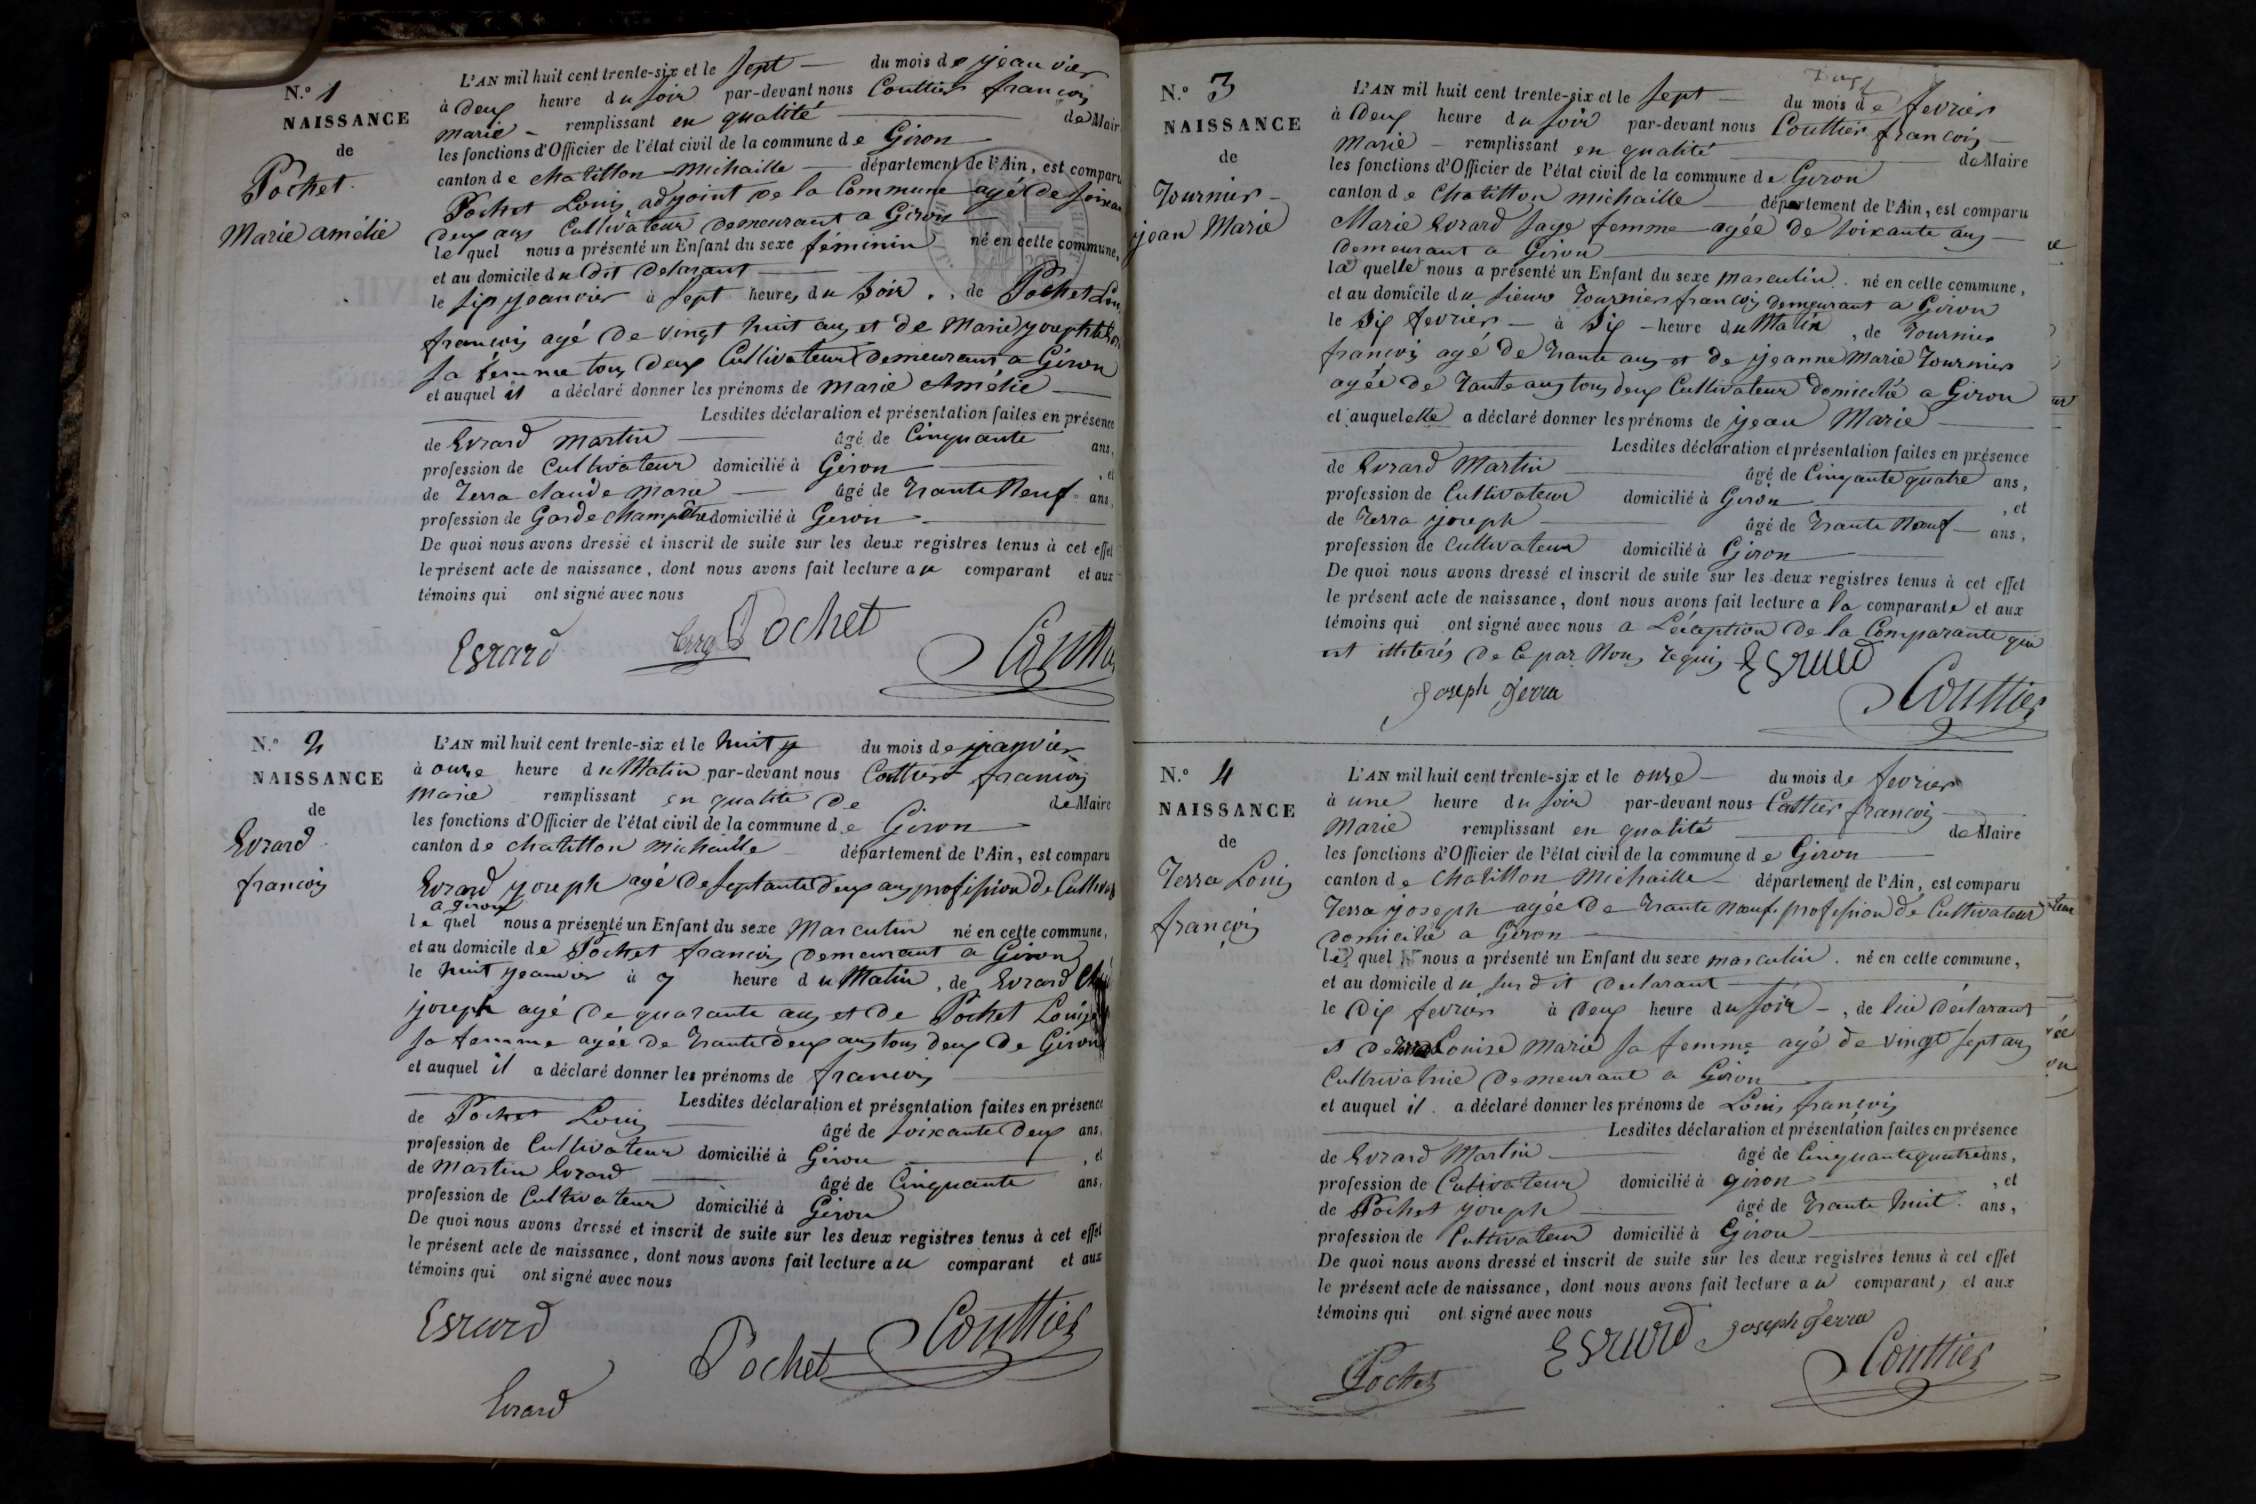 N.º 1
NAISSANCE
de
Pochet
Marie amélie
L'AN mil huit cent trente-six et le sept du mois de jeanvier
à deux heure du soir par-devant nous Couttier francois
marie remplissant en qualité de Mair
les fonctions d'Officier de l'état civil de la commune de Giron
canton de chatillon Michaille département de l'Ain, est comparu
Pochet Louis adjoint de la Commune agé de soixan
deux ans Cultivateur demeurant a Giron
le quel nous a présenté un Enfant du sexe féminin né en cette commune,
et au domicile du dit delarant
le six jeanvier à sept heures du soir, de Pochet
francois agé de vingt huit ans et de Marie josephte
sa femme tous deux Cultivateur demeurant a Giron
et auquel il a déclaré donner les prénoms de marie Amélie
Lesdites déclaration et présentation faites en présence
de Evrard martin âgé de Cinquante ans,
profession de Cultivateur domicilié à Giron, et
de Terra claude marie âgé de trante Neuf ans,
profession de Garde champêtre domicilié à Geron
De quoi nous avons dressé et inscrit de suite sur les deux registres tenus à cet effet
le présent acte de naissance, dont nous avons fait lecture au comparant et aux
témoins qui ont signé avec nous
Esrard Pochet
N.º 2
NAISSANCE
de
Evrard
francois
L'AN mil huit cent trente-six et le huit du mois de janvier
à onze heure du Matin par-devant nous Couttier francois
marie remplissant en qualité de de Maire
les fonctions d'Officier de l'état civil de la commune de Giron
canton de chatillon Michaille département de l'Ain, est comparu
Evrard joseph agé de septante deux ans profission de Cultivat
a giron
le quel nous a présenté un Enfant du sexe Masculin né en cette commune,
et au domicile de Pochet francois demeurant a Giron
le huit jeanvier à 7 heure du Matin, de Evrard
joseph agé de quarante ans et de Pochet Louise
sa femme agée de trante deux ans tous deux de Giron
et auquel il a déclaré donner les prénoms de francois
Lesdites déclaration et présentation faites en présence
de Pochet Louis âgé de soixante deux ans,
profession de Cultivateur domicilié à Giron, et
de Martin Evrard âgé de Cinquante ans,
profession de Cultivateur domicilié à Giron
De quoi nous avons dressé et inscrit de suite sur les deux registres tenus à cet effet
le présent acte de naissance, dont nous avons fait lecture au comparant et aux
témoins qui ont signé avec nous
Esrard Pochet Couttier
Evrard
N.º 3
NAISSANCE
de
Tournier
jean Marie
L'AN mil huit cent trente-six et le sept du mois de fevrier
à deux heure du soir par-devant nous Couttier francois
Marie remplissant en qualité de Maire
les fonctions d'Officier de l'état civil de la commune de Giron
canton de Chatillon michaille département de l'Ain, est comparu
Marie Evrard sage femme agée de soixante ans
demeurant a Giron
la quelle nous a présenté un Enfant du sexe masculin. né en cette commune,
et au domicile du sieur Tournier francois demeurant a Giron
le six fevrier à six heure du Matin, de Tournier
francois agé de trante ans et de jeanne Marie Tournier
agée de trante ans tous deux Cultivateur domicilié a Giron
et auquel elle a déclaré donner les prénoms de jean Marie
Lesdites déclaration et présentation faites en présence
de Evrard Martin âgé de Cinquante quatre ans,
profession de Cultivateur domicilié à Giron, et
de Terra joseph âgé de trante Neuf ans,
profession de Cultivateur domicilié à Giron
De quoi nous avons dressé et inscrit de suite sur les deux registres tenus à cet effet
le présent acte de naissance, dont nous avons fait lecture a la comparante et aux
témoins qui ont signé avec nous a L'éception de la Comparante qui
est illitérés de ce par Nous requis Esrard
Joseph Terra Couttier
N.º 4
NAISSANCE
de
Terra Louis
francois
L'AN mil huit cent trente-six et le onze du mois de fevrier
à une heure du soir par-devant nous Couttier francois
Marie remplissant en qualité de Maire
les fonctions d'Officier de l'état civil de la commune de Giron
canton de Chatillon Michaille département de l'Ain, est comparu
Terra joseph agée de trante Nœuf profession de Cultivateur
domicilié a Giron
le quel nous a présenté un Enfant du sexe masculin. né en cette commune,
et au domicile du susdit declarant
le dix fevrier à deux heure du soir, de lui déclarant
et de Louise Marie sa femme agé de vingt sept ans
Cultivatrice demeurant a Giron
et auquel il a déclaré donner les prénoms de Louis francois
Lesdites déclaration et présentation faites en présence
de Evrard Martin âgé de Cinquante quatre ans,
profession de Cultivateur domicilié à giron, et
de Pochet joseph âgé de trante huit ans,
profession de Cultivateur domicilié à Giron
De quoi nous avons dressé et inscrit de suite sur les deux registres tenus à cet effet
le présent acte de naissance, dont nous avons fait lecture au comparant, et aux
témoins qui ont signé avec nous
Pochet Esrard Joseph Terra Couttier